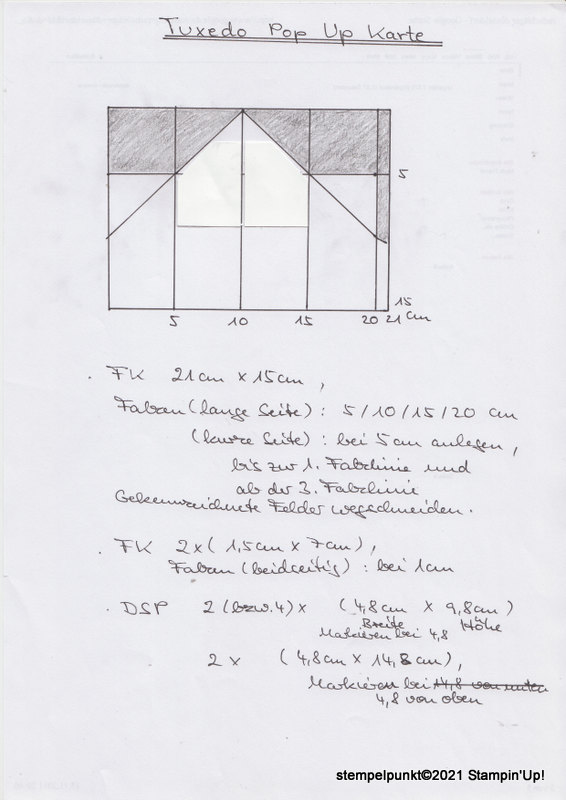 Tuxedo Pop Up Karte
5
15
5 10 15 20 21 cm
. FK 21cm x 15cm,
Falzen (lange Seite): 5/10/15/20 cm
(kurze Seite): bei 5cm anlegen,
bis zur 1. Falzlinie und
ab der 3. Falzlinie
Gekennzeichnete Felder wegschneiden.
. FK 2x (1,5cm x 7cm),
Falzen (beidseitig): bei 1cm
. DSP 2 (bzw. 4) x (4,8cm x 9,8cm)
Breite Höhe
Markieren bei 4,8
2 x (4,8cm x 14,8cm),
Markieren bei 14,8 von unten
4,8 von oben
stempelpunkt©2021 Stampin'Up!